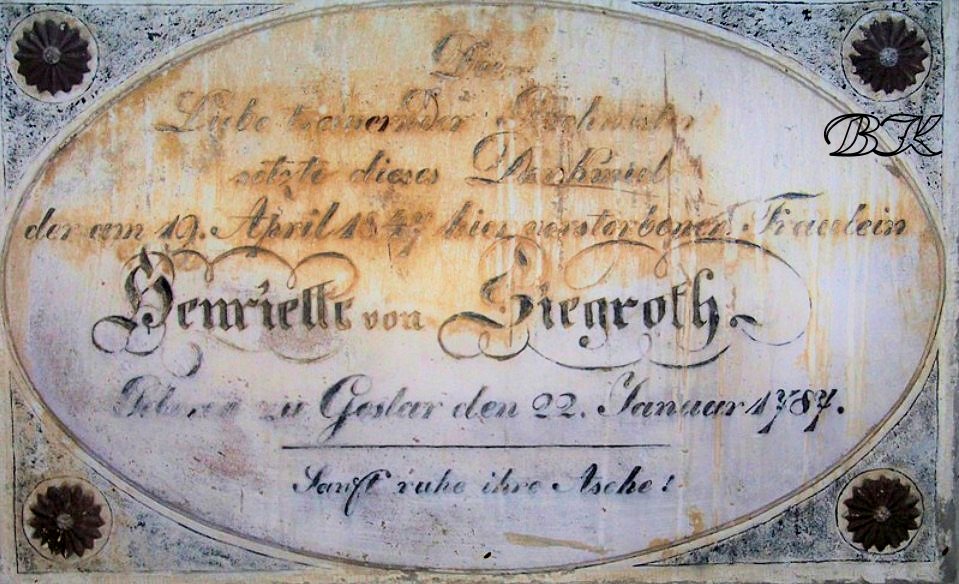 Die
Liebe trauernder
setzte dieses Denkmal
der am 19. April 1847 hier verstorbenen Fräulein
Henriette von Siegroth.
Geboren zu Goslar den 22. Januar 1787.
Sanft ruhe ihre Asche!
BK